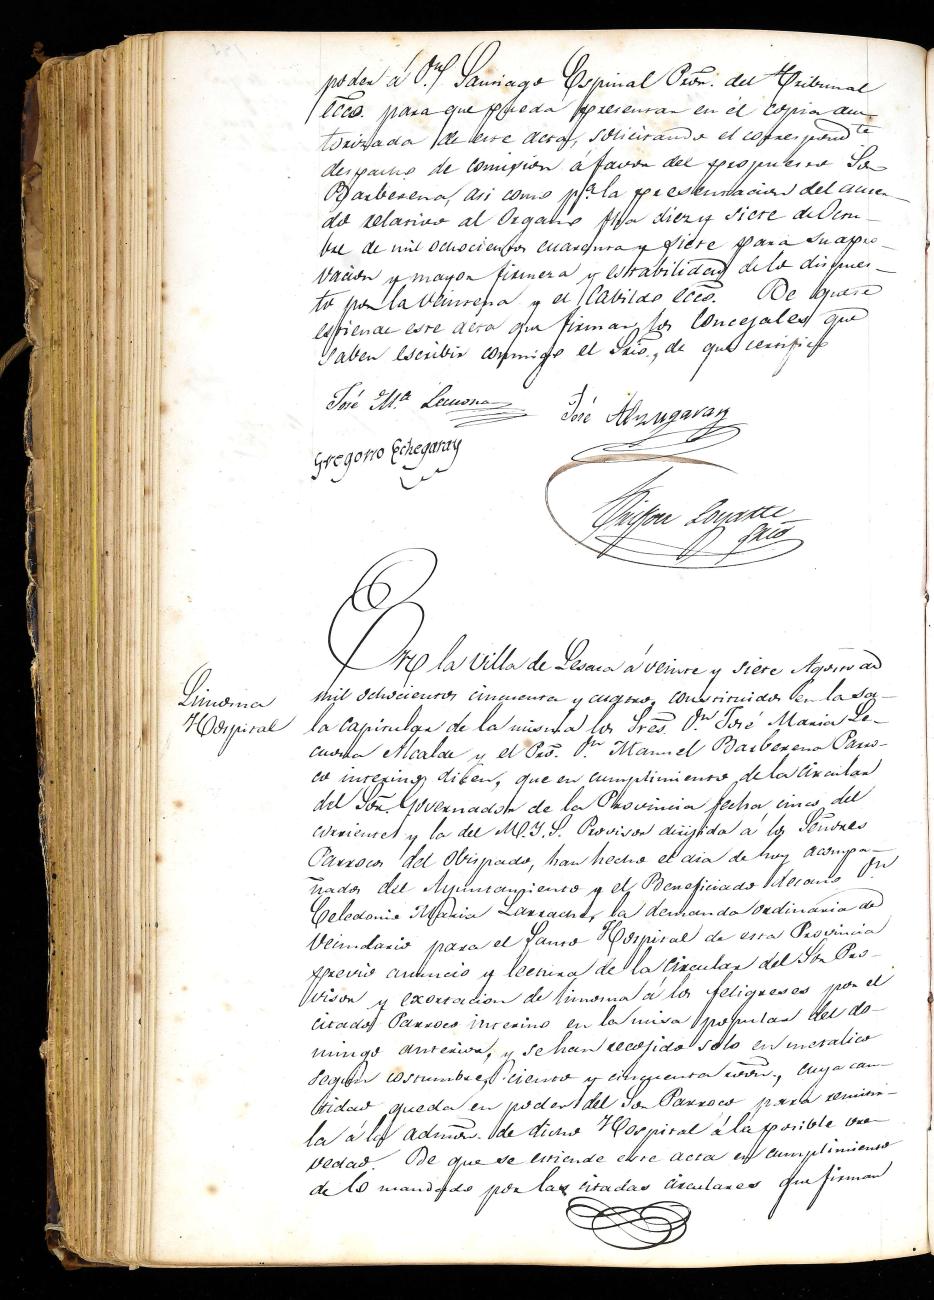 poder á Dn. Santiago Espinal Pror. del Tribunal
Ecco. para que pueda presentar en él copia au-
torizada de este acta, solicitando el correspondte
despacho de comision á favor del propuesto Sor
Barberena, asi como pa. la presentacion del acuer-
do relativo al Organo fha diez y siete de Octu-
bre de mil ochocientos cuarenta y siete para su apro-
vacion y mayor firmeza y estabilidad de lo dispues-
to por la Veintena y el Cavildo ecco. De que se
estiende este acta que firman los Concejales que
saben escribir conmigo el Srio., de que certifico
José Ma. Lecuona
José Alzugaray
Gregorio Echegaray
Loyarte
Srio
Limosna
Hospital
En la Villa de Lesaca á veinte y siete Agosto de
mil ochocientos cincuenta y cuatro, constituidos en la sa-
la capitular de la misma los Sres. Dn. José Maria Le-
cuona Alcalde y el Pro. Dn. Manuel Barberena Parro-
co interino, dicen, que en cumplimiento de la circular
del Sor. Governador de la Provincia fecha cinco del
corriente, y la del M.Y.S. Provisor dirijida á los Señores
Parrocos del Obispado, han hecho el dia de hoy acompa-
ñados del Ayuntamiento y el Beneficiado decano Dn
Celedonio Maria Larrache, la demanda ordinaria de
Vecindario para el Santo Hospital de esta Provincia
previo anuncio y lectura de la circular del Sor Pro-
visor y exortacion de limosna á los feligreses por el
citado Parroco interino en la misa popular del do-
mingo anterior, y se han recojido solo en metalico
segun costumbre, ciento y cincuenta rvon., cuya can-
tidad queda en poder del Sor Parroco para remitir-
la á la admon. de dicho Hospital á la posible vre-
vedad. De que se estiende este acta en cumplimiento
de lo mandado por las citadas circulares que firman